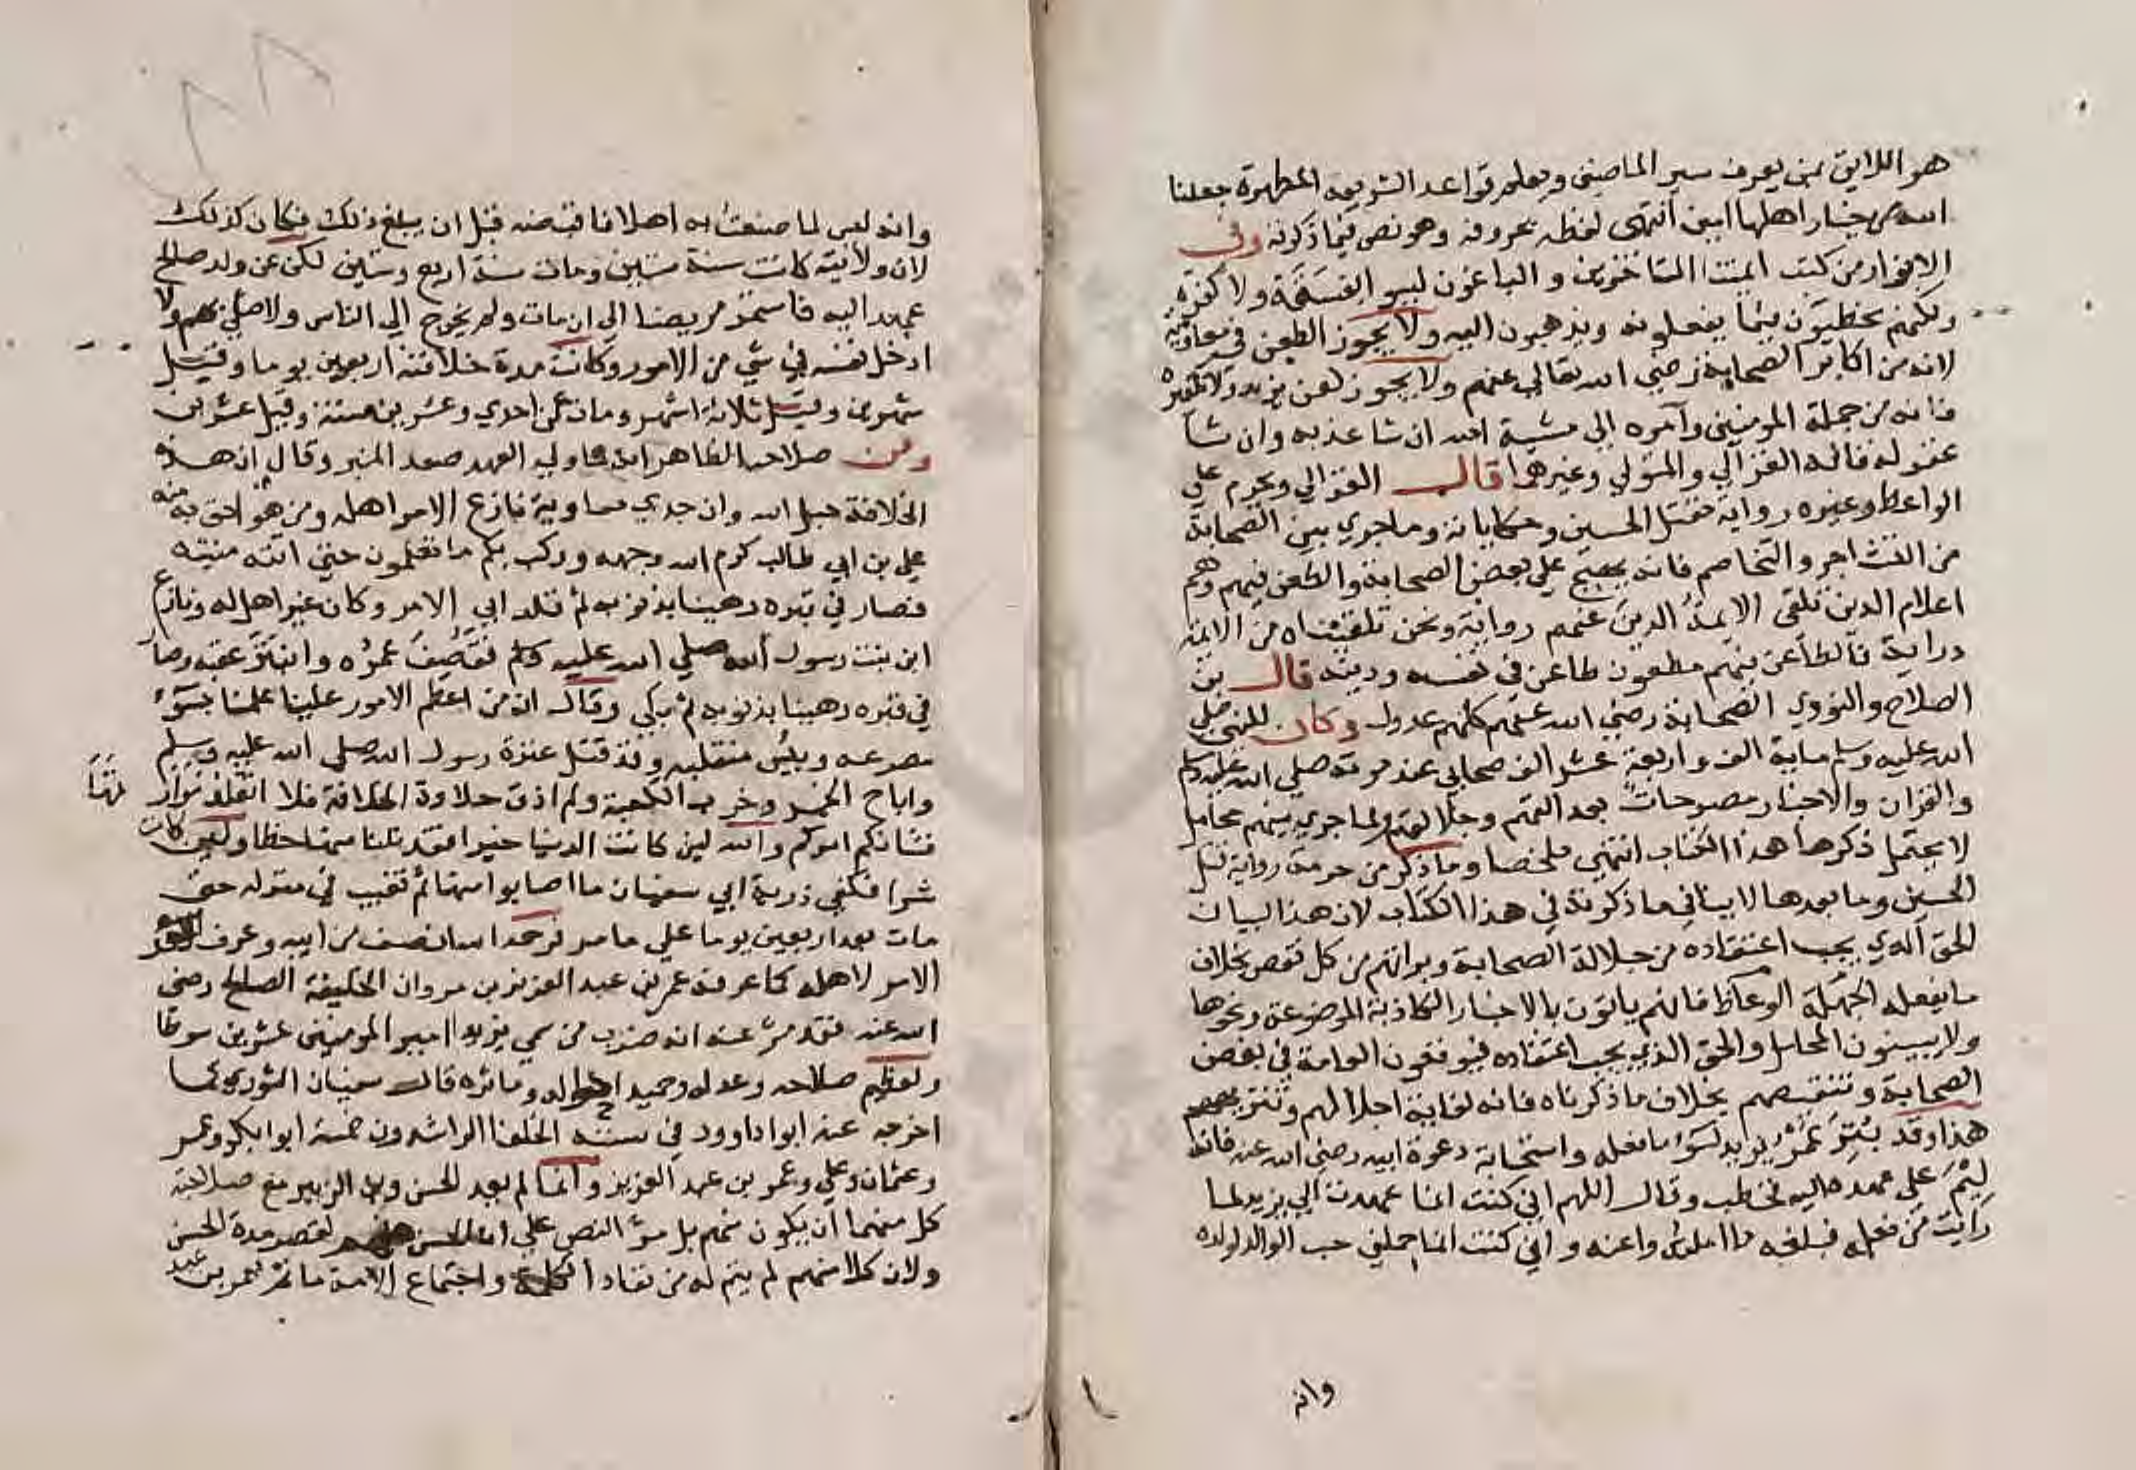 هو اللايق بمن يعرف سير الماضين ويعلم قواعد الشريعة المطهرة جعلنا
الله من خيار اهلها امين انتهى لفظه بحروفه وهو نص فيما ذكرته وفي
الانوار من كتب ائمتنا المتاخرين والباغون ليسو ابفسقة ولا كفرة
ولكنهم مخطيون فيما يفعلونه ويذهبون اليه ولا يجوز الطعن في معاوية
لانه من اكابر الصحابة رضي الله تعالى عنهم ولا يجوز لعن يزيد ولا تكفيره
فانه من جملة المومنين وآمره الى مشية الله ان شا عذبه وان شا
عفوله قاله الغزالي والمتولي وغيرهما قال الغزالي ويحرم على
الواعظ وغيره رواية مقتل الحسين وحكاياته وما جرى بين الصحابة
من التشاجر والتخاصم فانه يهيج على بعض الصحابة والطعن فيهم وهم
اعلام الدين تلقى الايمة الدين عنهم رواية ونحن تلقيناه من الايمة
دراية فالطاعن فيهم مطعون طاعن في نفسه ودينه قال بن
الصلاح والنووي الصحابة رضي الله عنهم كلهم عدول وكان للنبي صلى
الله عليه وسلم ماية الف واربعة عشر الف صحابي عند موته صلى الله عليه وسلم
والقران والاخبار مصرحات بعدالتهم وجلالتهم ولما جري بينهم محامل
لا يحتمل ذكرها هذا الكتاب انتهى ملخصا وما ذكر من حرمة رواية قتل
الحسين وما بعدها لا ينافي ما ذكرته في هذا الكتاب لان هذا البيان
الحق الذي يجب اعتقاده من جلالة الصحابة وبراتهم من كل نقص بخلاف
ما يفعله الجهلة الوعاظ فانهم ياتون بالاخبار الكاذبة الموضوعة ونحوها
ولا يبينون المحامل والحق الذي يجب اعتقاده فيوقعون العامة في بغض
الصحابة وتنقيصهم بخلاف ما ذكرناه فانه لغاية اجلالهم وتنزيههم
هذا وقد بتر عمر يزيد لسو ما فعله واستجابة دعوة ابيه رضي الله عنه فانه
ليم على عهده اليه فخطب وقال اللهم اني كنت انما عهدت الى يزيد لما
رايت من فعله فبلغه ما املته واعنه واني كنت انما حملني حب الوالد لولده
وانه
وانه ليس لما صنعت به اهلا فاقبضه قبل ان يبلغ ذلك فكان كذلك
لان ولايته كانت سنة ستين ومات سنة اربع وستين لكن عن ولد صالح
عهد اليه فاستمر مريضا الى ان مات ولم يخرج الى الناس ولا صلى بهم ولا
ادخل نفسه في شي من الامور وكانت مدة خلافته اربعين يوما وقيل
شهرين وقيل ثلاثة اشهر ومات عن احدي وعشرين سنة وقيل عشرين
ومن صلاحه الظاهر انه لما ولي العهد صعد المنبر وقال ان هذه
الخلافة حبل الله وان جدي معاوية نازع الامر اهله ومن هو احق به منه
علي بن ابي طالب كرم الله وجهه وركب بكم ما تعلمون حتى اتته منيته
فصار في قبره رهينا بذنوبه ثم قلد ابي الامر وكان غير اهل له ونازع
ابن بنت رسول الله صلى الله عليه وسلم فقصف عمره وانبتر عقبه وصار
في قبره رهينا بذنوبه ثم بكي وقال ان من اعظم الامور علينا علمنا بسوء
مصرعه وبيس منقلبه وقد قتل عترة رسول الله صلى الله عليه وسلم
واباح الخمر وخرب الكعبة ولم اذق حلاوة الخلافة فلا اتقلد مرار تها
فشانكم امركم والله لين كانت الدنيا خيرا فقد نلنا منها حظا ولين كانت
شرا فكفي ذرية ابي سفيان ما اصابوا منها ثم تغيب في منزله حتى
مات بعد اربعين يوما على ما مر فرحمه الله انصف من ابيه وعرف
الامر لاهله كما عرفه عمر بن عبد العزيز بن مروان الخليفة الصالح رضي
الله عنه فقد مر عنه انه ضرب من سمي يزيد امير المومنين عشرين سوطا
ولعظيم صلاحه وعدله وحميد احواله وماثره قال سفيان الثوري كما
اخرجه عنه ابوا داوود في سننه الخلفا الراشدون خمسة ابوا بكر وعمر
وعثمان وعلي وعمر بن عبد العزيز وانما لم يعد الحسن وبن الزبير مع صلاحية
كل منهما ان يكون منهم بل مر النص على ان الحسن منهم لقصر مدة الحسن
ولان كلا منهم لم يتم له من نفاد الكلمة واجتماع الامة ما تم لعمر بن عبد